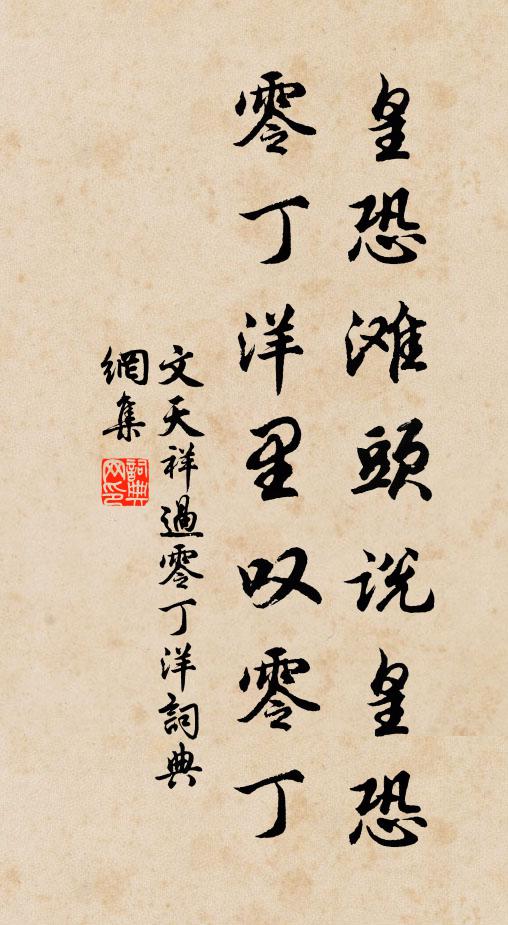 皇恐滩頭説皇恐
零丁洋里叹零丁
文天祥過零丁洋詞典
網集
詞典網印